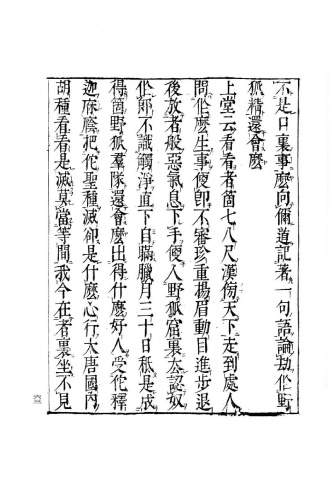 不是口裏事麼向儞道記著一句語論劫作野
狐精還會麼
上堂云看看者箇七八尺漢傍天下走到處人
問作麼生事便即不審珍重揚眉動目進步退
後放者般惡氣息下手便入野狐窟裏太認奴
作郎不識觸淨直下自瞞臘月三十日秪是成
得箇野狐羣隊還會麼出得什麼好人受佗釋
迦庥䕃把佗聖種滅卻是什麼心行大唐國內
胡種看看是滅莫當等閒我今在者裏坐不見
六三